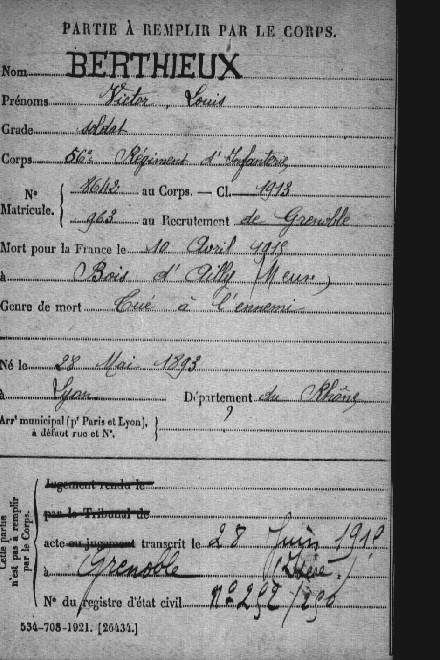 PARTIE À REMPLIR PAR LE CORPS.
Nom BERTHIEUX
Prénoms Victor, Louis
Grade soldat
Corps 56e Régiment d'Infanterie
No Matricule. { 8642 au Corps. — Cl. 1913
963 au Recrutement de Grenoble
Mort pour la France le 10 Avril 1915
à Bois d'Ailly (Meuse)
Genre de mort Tué à l'ennemi
Né le 28 Mai 1893
à Lyon Département du Rhône
Arrt municipal (pr Paris et Lyon), à défaut rue et No. } ?
Cette partie n'est pas à remplir par le Corps.
Jugement rendu le
par le Tribunal de
acte ou jugement transcrit le 28 Juin
à Grenoble (Isère)
No du registre d'état civil no 292/
534-708-1921. [26434.]